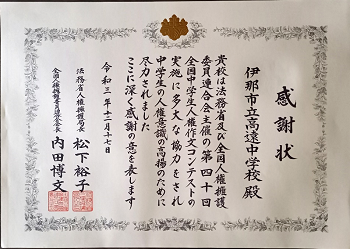 感謝状
伊那市立高遠中学校 殿
貴校は法務省及び全国人権擁護
委員連合会主催の第四十回
全国中学生人権作文コンテストの
実施に多大な協力をされ
中学生の人権意識の高揚のために
尽力されました
ここに深く感謝の意を表します
令和三年十二月十七日
法務省人権擁護局長
松下裕子
全国人権擁護委員連合会長
内田博文